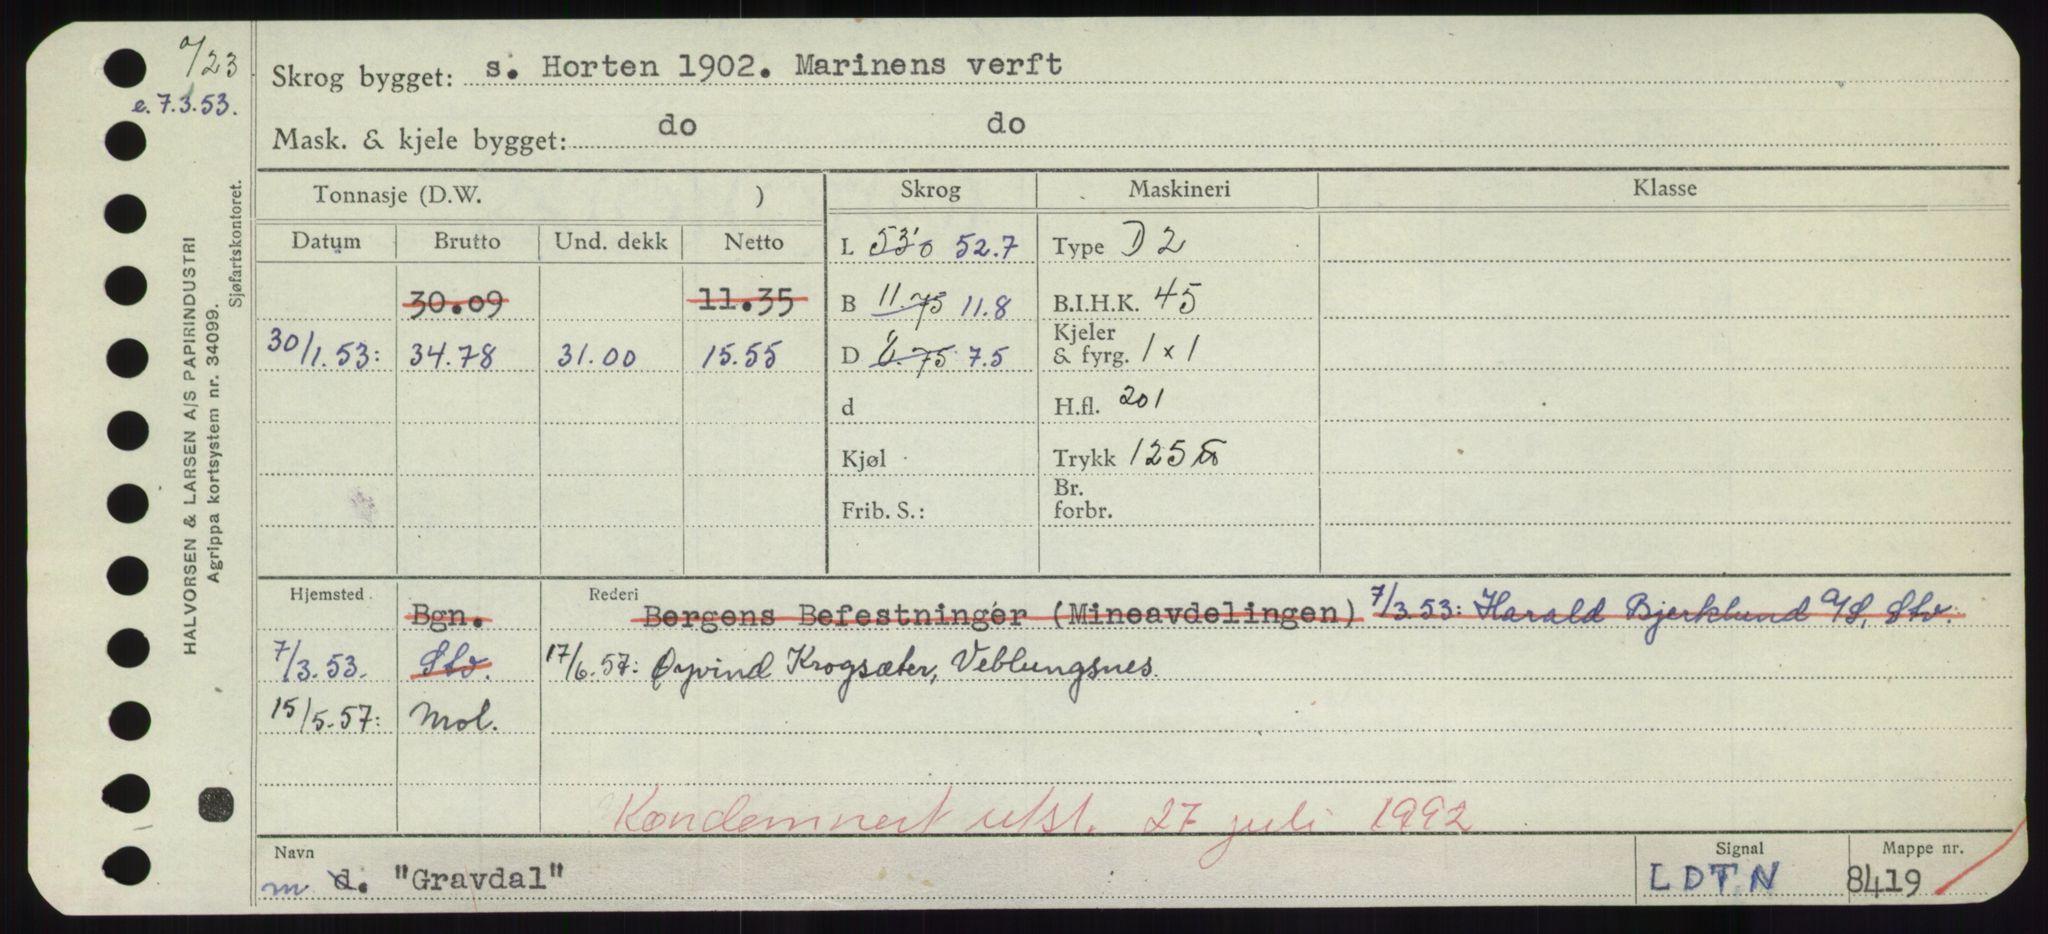 a/23
e. 7.3.53.
HALVORSEN & LARSEN A/S PAPIRINDUSTRI
Agrippa kortsystem nr. 34099.
Sjøfartskontoret.
Skrog bygget: s. Horten 1902. Marinens verft
Mask. & kjele bygget: do do
Tonnasje (D.W. ) Skrog Maskineri Klasse
Datum Brutto Und. dekk Netto L 53'0 52.7 Type D 2
30.09 11.35 B 11.75 11.8 B.I.H.K. 45
30/1.53: 34.78 31.00 15.55 D 6.75 7.5 Kjeler & fyrg. 1 x 1
d H.fl. 201
Kjøl Trykk 125
Frib. S.: Br. forbr.
Hjemsted Rederi
Bgn. Bergens Befestninger (Mineavdelingen) 7/3.53: Harald Bjerklund A/S, Stv.
7/3.53. Stv. 17/6.57: Øyvind Krogsæter, Veblungsnes.
15/5.57: Mol.
Kondemnert utst. 27 juli 1992
Navn Signal Mappe nr.
m d. "Gravdal" LDTN 8419